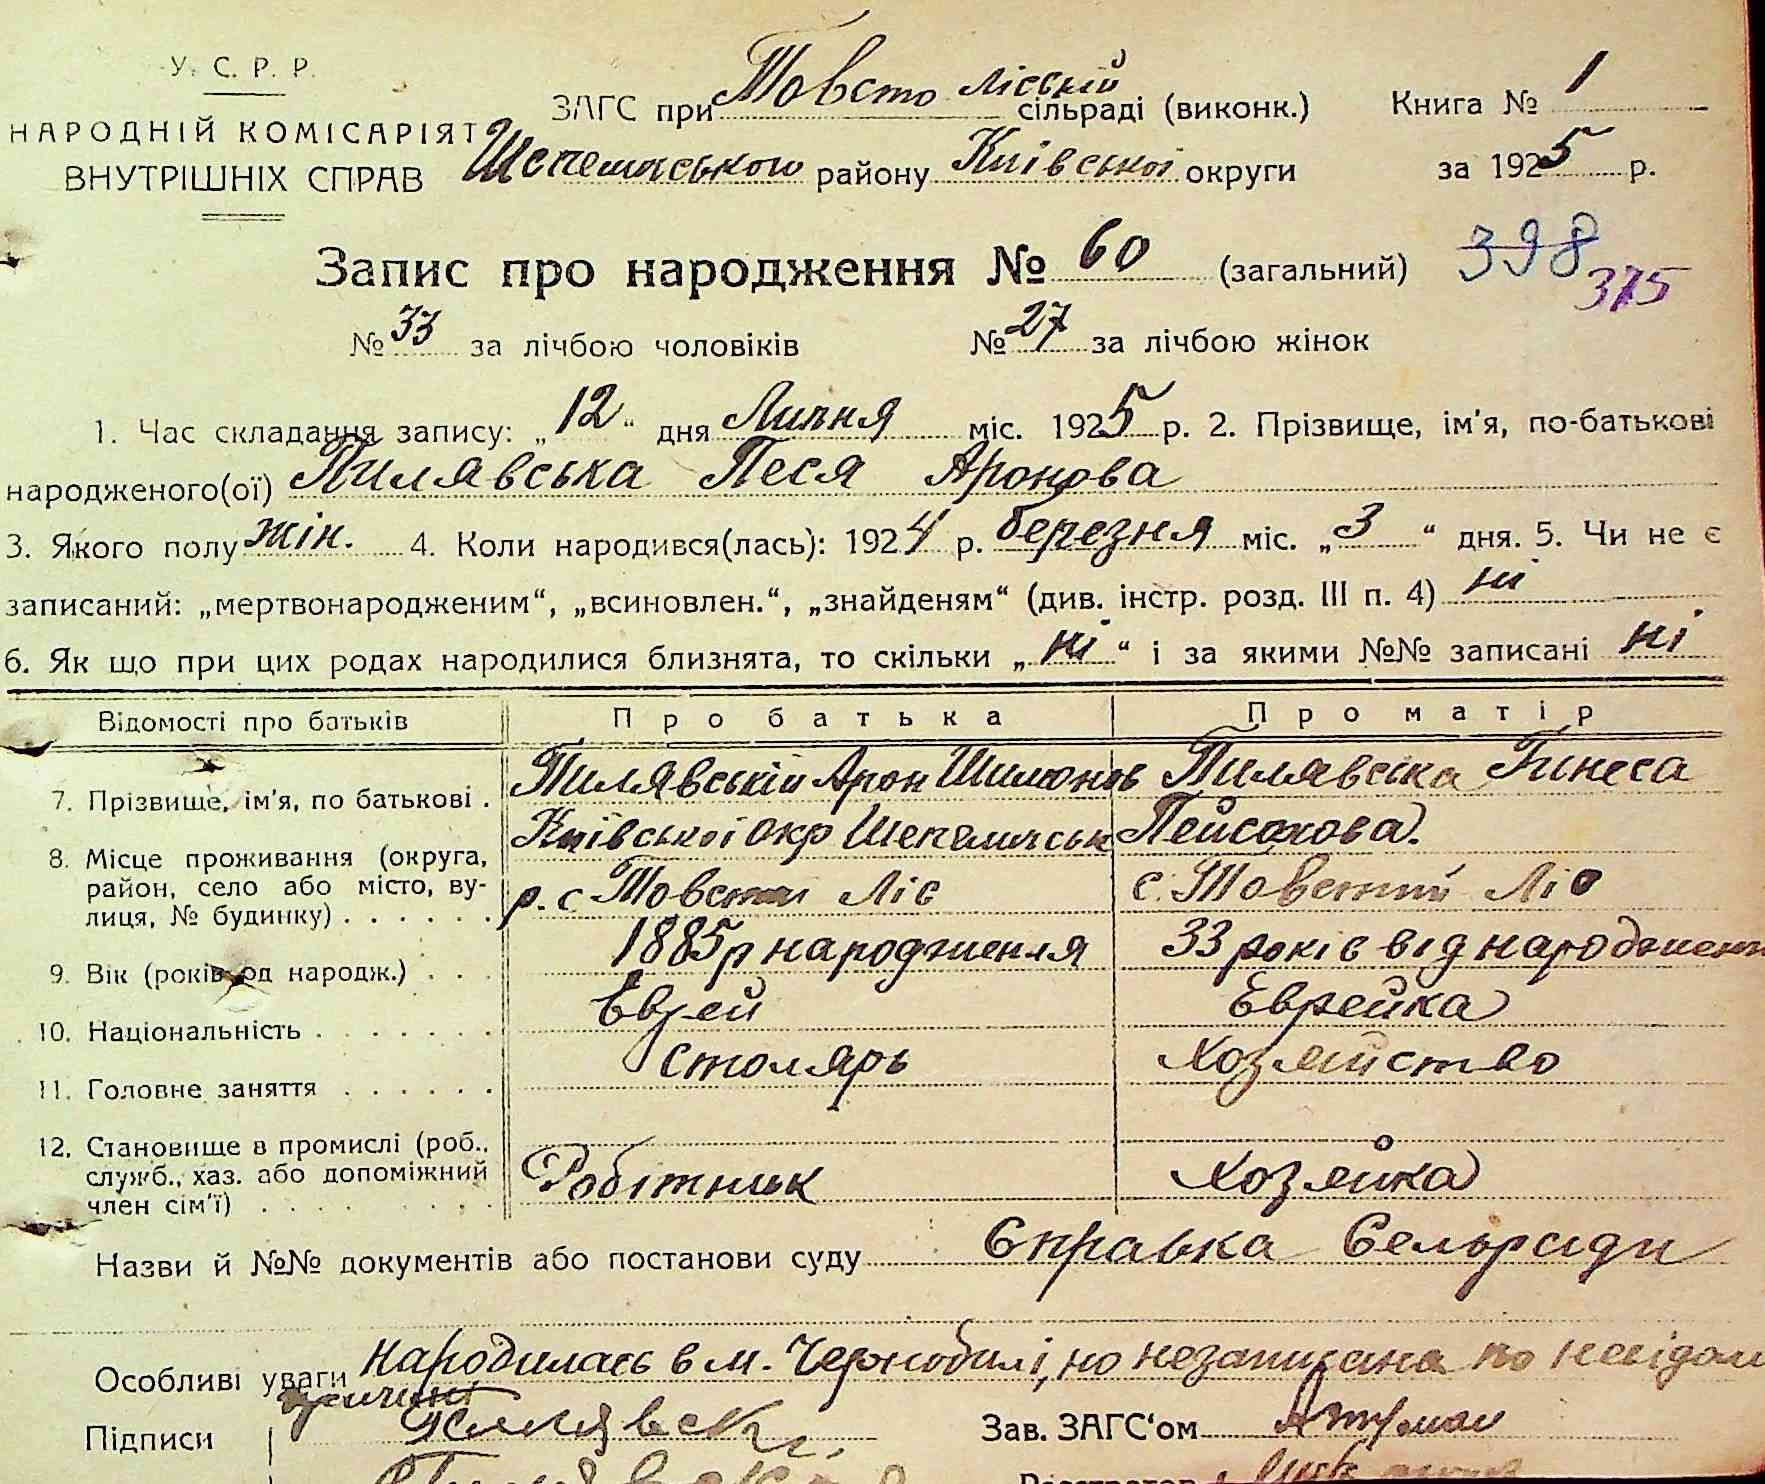 У. С. Р. Р.
НАРОДНІЙ КОМІСАРІЯТ
ВНУТРІШНІХ СПРАВ
ЗАГС при Товсто Лісській сільраді (виконк.) Книга № 1
Шепелиського району Київської округи за 1925 р.
Запис про народження № 60 (загальний) 398
375
№ 33 за лічбою чоловіків № 27 за лічбою жінок
1. Час складання запису: „12“ дня Липня міс. 1925 р. 2. Прізвище, ім'я, по-батькові
народженого(ої) Пилявська Песя Аронова
3. Якого полу жін. 4. Коли народився(лась): 1924 р. березня міс. „3“ дня. 5. Чи не є
записаний: „мертвонародженим“, „всиновлен.“, „знайденям“ (див. інстр. розд. III п. 4) ні
6. Як що при цих родах народилися близнята, то скільки „ні“ і за якими №№ записані ні
Відомості про батьків Про батька Про матір
7. Прізвище, ім'я, по батькові . Пилявській Арон Шимонов Пилявська Гинеса
Київської окр Шепелиськ Пейсахова.
8. Місце проживання (округа,
район, село або місто, ву-
лиця, № будинку) . . . . . . р. с Товстий Ліс с. Товстий Ліс
9. Вік (років од народж.) . . . 1885 р народження 33 років від народження
10. Національність . . . . . . . Еврей Еврейка
11. Головне заняття . . . . . . Столярь Хозяйство
12. Становище в промислі (роб.,
служб., хаз. або допоміжний
член сім'ї) . . . . . . . . Робітник Хозяйка
Назви й №№ документів або постанови суду Справка Сельради
Особливі уваги Народилась в м. Чернобилі, но незаписана по невідом
причині
Підписи Пилявск Зав. ЗАГС'ом